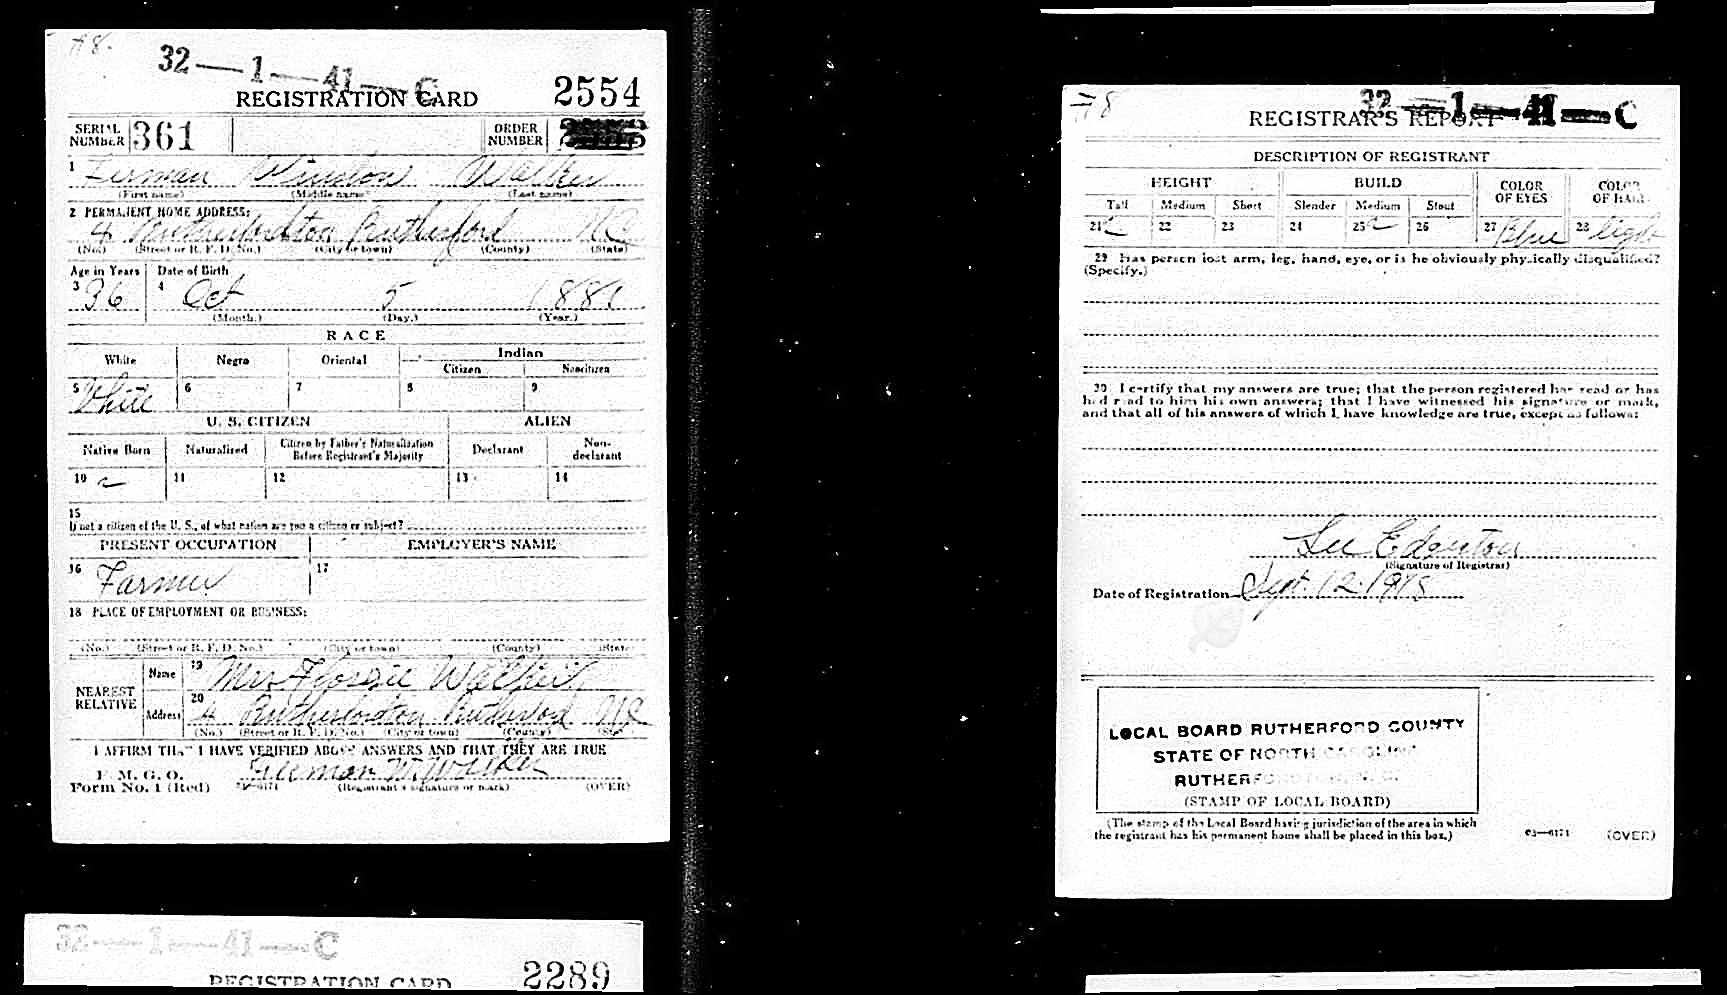 #8.
32—1—41—C
REGISTRATION CARD 2554
SERIAL NUMBER 361 ORDER NUMBER
1 Winston Walker
(First name) (Middle name) (Last name)
2 PERMANENT HOME ADDRESS:
4 Rutherfordton Rutherford NC
(No.) (Street or R. F. D. No.) (City or town) (County) (State)
Age in Years Date of Birth
3 36 4 Oct 5 1881
(Month.) (Day.) (Year.)
RACE
White Negro Oriental Indian
Citizen Noncitizen
5 White 6 7 8 9
U. S. CITIZEN ALIEN
Native Born Naturalized Citizen by Father's Naturalization Before Registrant's Majority Declarant Non-declarant
10 11 12 13 14
15
If not a citizen of the U. S., of what nation are you a citizen or subject?
PRESENT OCCUPATION EMPLOYER'S NAME
16 Farmer 17
18 PLACE OF EMPLOYMENT OR BUSINESS:
(No.) (Street or R. F. D. No.) (City or town) (County) (State)
NEAREST RELATIVE
Name 19 Mrs Walker
Address 20 4 Rutherfordton Rutherford NC
(No.) (Street or R. F. D. No.) (City or town) (County) (State)
I AFFIRM THAT I HAVE VERIFIED ABOVE ANSWERS AND THAT THEY ARE TRUE
P. M. G. O.
Form No. 1 (Red) W. Walker
(Registrant's signature or mark) (OVER)
32—1—41—C
REGISTRATION CARD 2289
#8
32—1—41—C
REGISTRAR'S REPORT
DESCRIPTION OF REGISTRANT
HEIGHT BUILD COLOR OF EYES COLOR OF HAIR
Tall Medium Short Slender Medium Stout
21 22 23 24 25 26 27 Blue 28 Light
29 Has person lost arm, leg, hand, eye, or is he obviously physically disqualified?
(Specify.)
30 I certify that my answers are true; that the person registered has read or has
had read to him his own answers; that I have witnessed his signature or mark,
and that all of his answers of which I have knowledge are true, except as follows:
Lee Edgerton
(Signature of Registrar)
Date of Registration Sept. 12-1918
LOCAL BOARD RUTHERFORD COUNTY
STATE OF NORTH CAROLINA
RUTHERFORDTON, N. C.
(STAMP OF LOCAL BOARD)
(The stamp of the Local Board having jurisdiction of the area in which
the registrant has his permanent home shall be placed in this box.)
03—6171 (OVER)